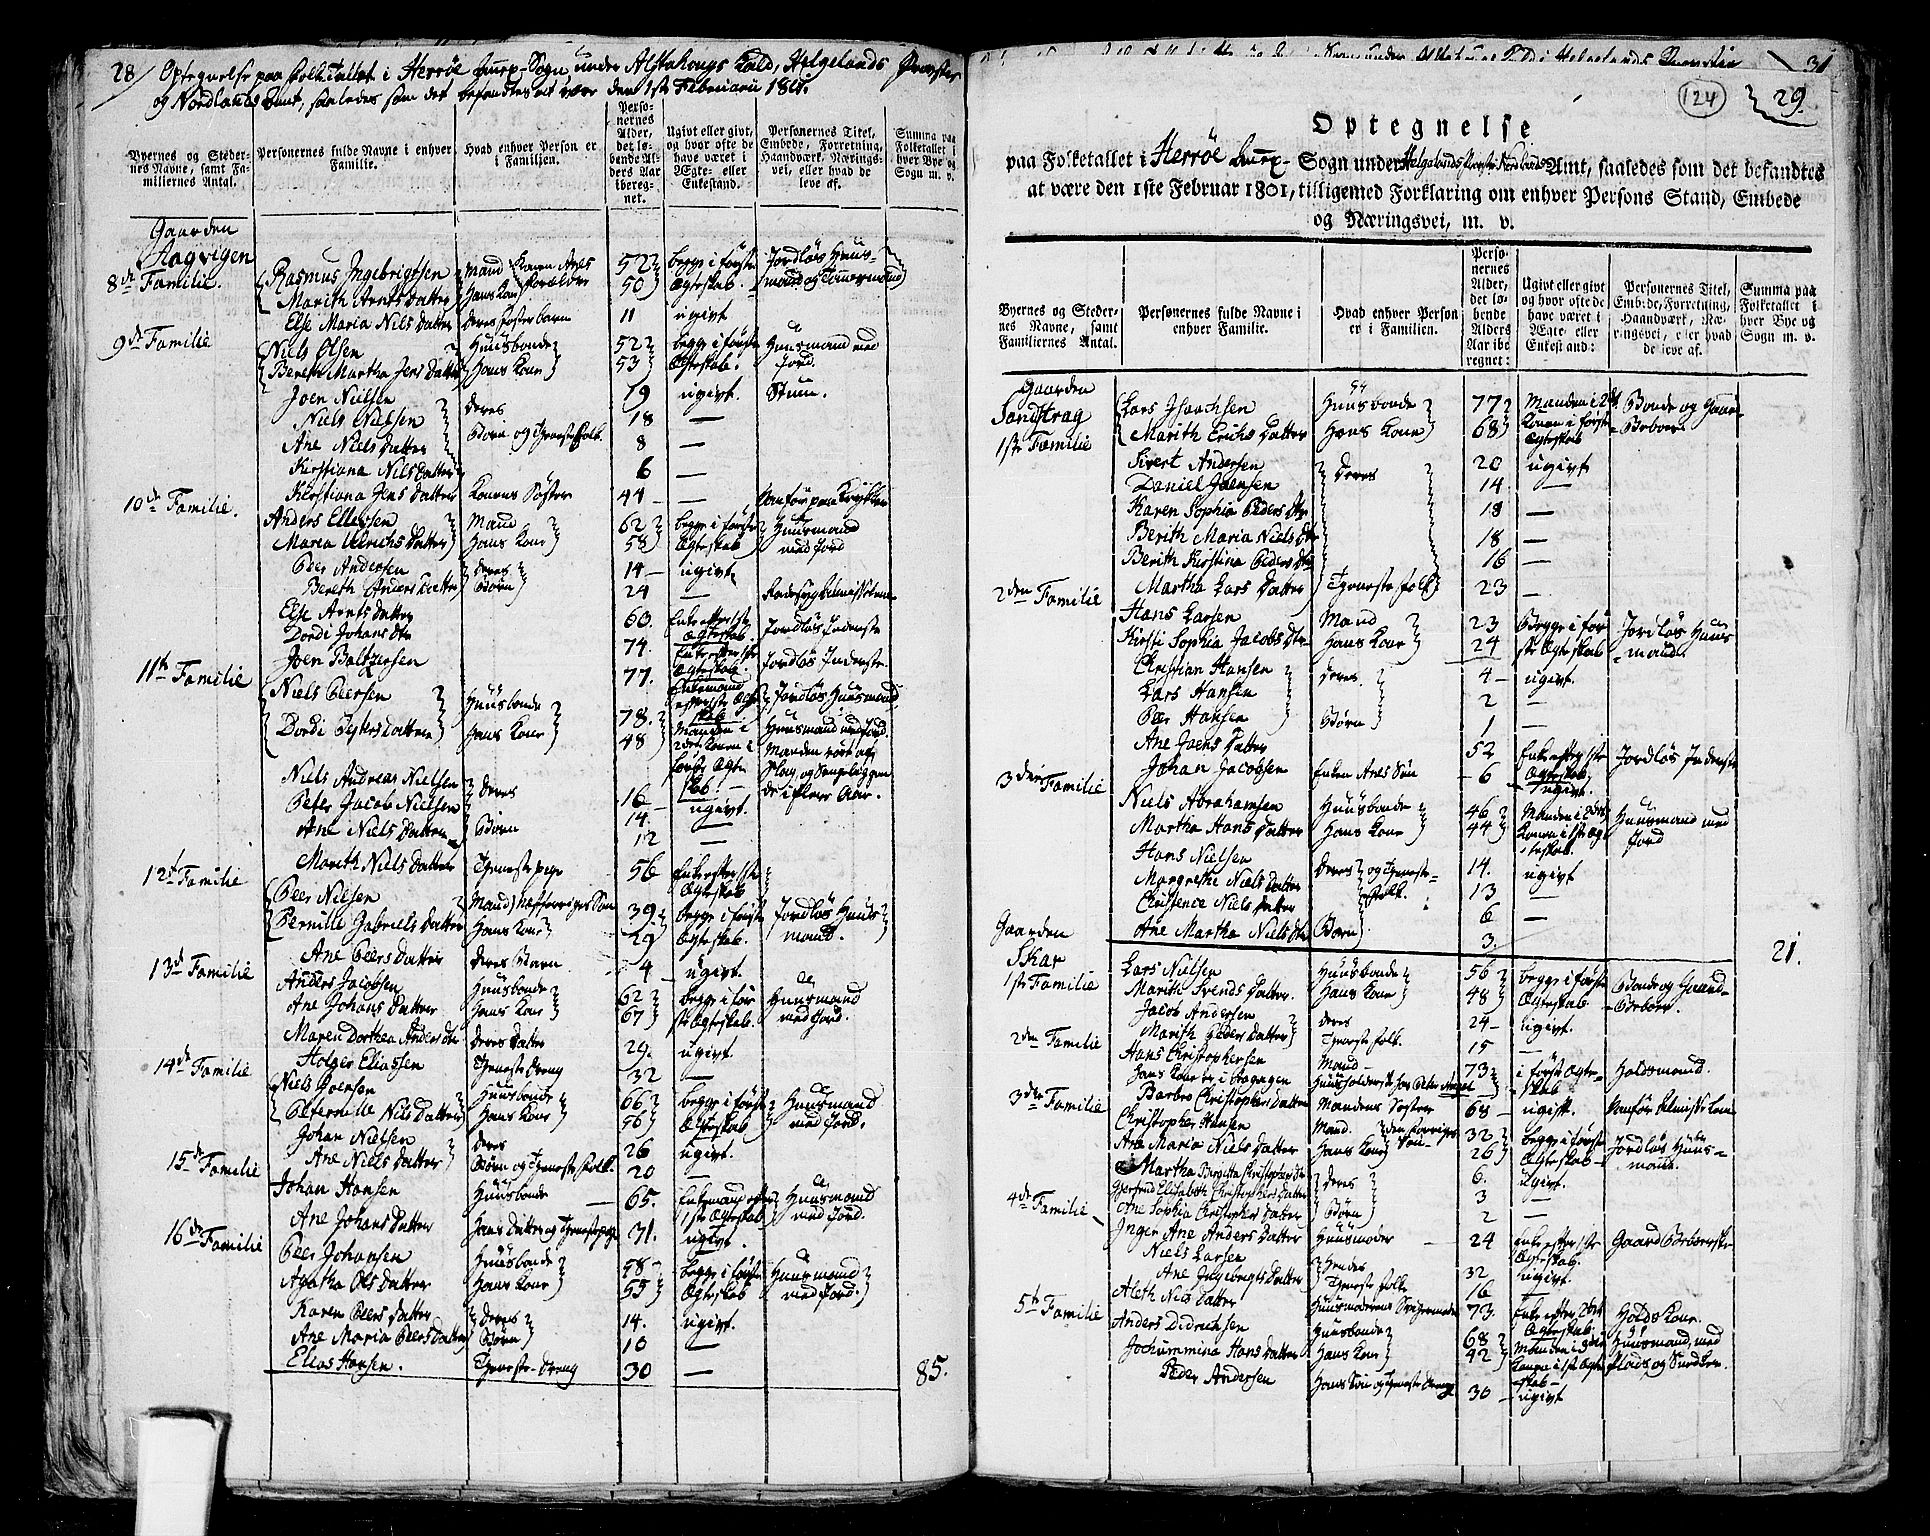 28
Optegnelse paa Folketallet i Herröe Annex-Sogn under Alstahougs Kald, Helgelands Provstie
og Nordlands Amt, saaledes som det befandtes at være den 1ste Februarii 1801.
Byernes og Stedernes Navne, samt Familiernes Antal.
Personernes fulde Navne i enhver Familie.
Hvad enhver Person er i Familien.
Personernes Alder, det løbende Alders Aar iberegnet.
Ugivt eller givt, og hvor ofte de have været i Ægte- eller Enkestand.
Personernes Titel, Embede, Forretning, Haandværk, Næringsvei, eller hvad de leve af.
Summa paa Folketallet i hver Bye og Sogn m. v.
Gaarden
Hagvigen
8de Familie. Rasmus Ingebrigtsen Mand Konen Anes 52 begge i første Jordløs Huus-
Marith Arnts Datter Hans Kone Forældre 50 Ægteskab. mand og Tømmermand
Else Maria Niels Datter Deres Fosterbarn 11 ugivt
9de Familie Niels Olsen Huusbonde 52 begge i første Huusmand med
Bereth Martha Jens Datter Hans Kone 53 Ægteskab. Jord.
Joen Nielsen Deres 19 ugivt. Stum.
Niels Nielsen 18 —
Ane Niels Datter Børn og Tjenestefolk. 8 —
Kirstiana Niels Datter 6 —
Kirstiana Jens Datter Konens Søster 44 — Vanfør paa Krykker
10de Familie. Anders Ellevsen Mand 62 begge i første Huusmand
Maria Ulrichs Datter Hans Kone 58 Ægteskab med Jord
Peer Andersen Deres 14 — ugivt
Bereth Anders Datter Børn 24 —
Else Arnts Datter 60. Enke efter 1ste Ægteskab. Jordløs Inderste
Dordi Johans Dtr 74. Enke efter 1ste Ægteskab. Jordløs Inderste
Joen Baltzersen 77. Enkemand efter første Ægteskab Jordløs Huusmand
11te Familie Niels Peersen Huusbonde 78. Manden i Huusmand med Jord.
Dordi Peters Datter Hans Kone 48 2det Konen i første Ægteskab
Niels Andreas Nielsen Deres 16 ugivt.
Peter Jacob Nielsen 14. —
Ane Niels Datter Børn 12 —
Marith Niels Datter Tjenestepige 56 Enke efter 1ste Ægteskab
12te Familie Peer Nielsen Mand 39. begge i første Jordløs Huus-
Pernille Gabriels Datter Hans Kone 29 Ægteskab. mand.
Ane Peers Datter Deres Barn 4 ugivt.
13de Familie Anders Jacobsen Huusbonde 62 begge i før Huusmand
Ane Johans Datter Hans Kone 67 ste Ægteskab. med Jord.
Maren Dorthea Anders Dtr Deres Datter 29. ugivt
Holger Eliassen Tjeneste Dreng 32 —
14de Familie Niels Joensen Huusbonde 66 begge i første Huusmand
Petternille Niels Datter Hans Kone 56 Ægteskab med Jord.
Johan Nielsen Deres 26 ugivt.
Ane Niels Datter Børn og Tjeneste Folk. 20 —
15de Familie Johan Hansen Huusbonde 65. Enkemand efter 1ste Ægteskab Huusmand med Jord.
Ane Johans Datter Hans Datter og Tjenestepige 31. ugivt.
16de Familie Peer Johansen Huusbonde 58 begge i første Huusmand
Agatha Ols Datter Hans Kone 55 Ægteskab med Jord.
Karen Peers Datter Deres 14. ugivt.
Ane Maria Peers Datter Børn 10 —
Elias Hansen. Tjeneste-Dreng 30 —
85.
31
124
29.
Optegnelse
paa Folketallet i Herröe Annex-Sogn under Helgelands Provsti Nordlands Amt, saaledes som det befandtes
at være den 1ste Februar 1801, tilligemed Forklaring om enhver Persons Stand, Embede
og Næringsvei, m. v.
Byernes og Stedernes Navne, samt Familiernes Antal.
Personernes fulde Navne i enhver Familie.
Hvad enhver Person er i Familien.
Personernes Alder, det løbende Alders Aar iberegnet:
Ugivt eller givt, og hvor ofte de have været i Ægte- eller Enkestand:
Personernes Titel, Embede, Forretning, Haandværk, Næringsvei, eller hvad de leve af.
Summa paa Folketallet i hver Bye og Sogn m. v.
Gaarden
Sandstrag
1ste Familie Lars Isaachsen Huusbonde 77 Manden i 2det Bonde og Gaard-
Marith Erichs Datter Hans Kone 68 Konen i første Ægteskab Beboer.
Sivert Andersen Deres 20 ugivt
Daniel Joensen 14 —
Karen Sophia Peders Dtr 18 —
Berith Maria Niels Dtr 18 —
Berith Kirstina Peders Dtr 16 —
Martha Lars Datter Tjenestefolk 23 —
2den Familie Hans Larsen Mand 23 Begge i før Jordløs Huus
Kirsti Sophia Jacobs Dtr Hans Kone 24 ste Ægteskab mand.
Christian Hansen Deres 4 — ugivt.
Lars Hansen 2 —
Peer Hansen Børn 1 —
Ane Joens Datter 52 Enke efter 1ste Ægteskab Jordløs Inderste
Johan Jacobsen Enken Anes Søn 6 ugivt.
3die Familie Niels Abrahamsen Huusbonde 46 Manden i 2det Huusmand med
Martha Hans Datter Hans Kone 44 Konen i 1ste Ægteskab Jord
Hans Nielsen Deres og Tjeneste- 14. ugivt
Margrethe Niels Datter Folk. 13 —
Christence Niels Datter 6 —
Ane Martha Niels Dtr Børn 3.
21.
Gaarden
Skar
1ste Familie Lars Nielsen Huusbonde 56 begge i første Bonde og Gaard-
Marith Svends Datter. Hans Kone 48 Ægteskab Beboer.
Jacob Andersen Deres 24 — ugivt.
Marith Peders Datter Tjeneste Folk. 15 —
2den Familie Hans Christophersen Mand 73 i første Ægteskab Holdsmand.
Barbro Christophers Datter Mandens Søster 68 — ugivt.
3die Familie Christopher Hansen Mand. 32 begge i første Jordløs Huus-
Ane Maria Niels Datter Hans Kone 26 Ægteskab mand.
Martha Birgitta Christophers Dtr Deres 6. ugivt.
Gjertrud Elisabeth Christophers Datter 3 —
Ane Sophia Christophers Datter Børn 2 —
4de Familie Inger Ane Anders Datter Huusmoder 24 Enke efter 1ste Ægteskab. Gaard Beboerske
Niels Larsen Hendes 32 ugivt
Ane Ingebregts Datter Tjeneste Folk 16 —
Aleth Niels Datter Huusmoderens Svigermoder 73. Enke efter 2det Ægteskab. Holds Kone.
5te Familie Anders Didrichsen Huusbonde 68 Manden i 2det Huusmand, med
Jochummina Hans Datter Hans Kone 42 Konen i 1ste Ægteskab
Peder Andersen Hans Søn og Tjeneste Dreng 30 — ugivt